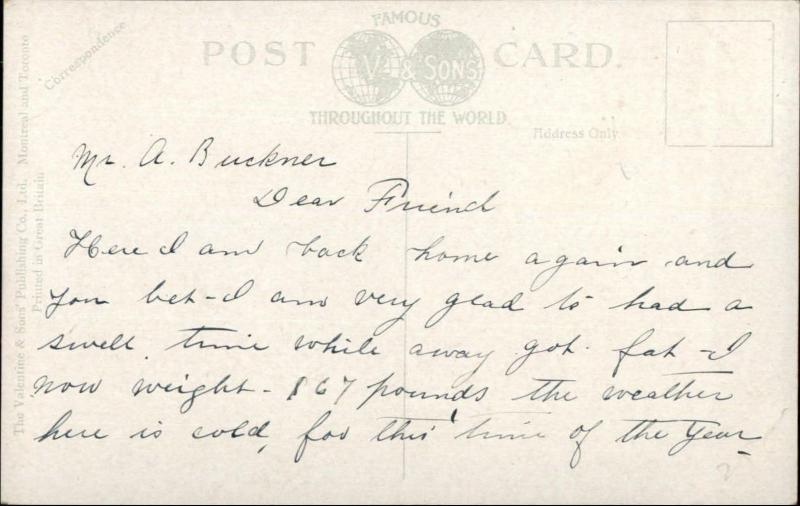 FAMOUS
POST CARD.
V. & SONS
THROUGHOUT THE WORLD
Correspondence
Address Only
The Valentine & Sons' Publishing Co., Ltd., Montreal and Toronto
Printed in Great Britain
Mr. A. Buckner
Dear Friend
Here I am back home again and
you bet - I am very glad to had a
swell time while away got fat - I
now weight - 167 pounds the weather
here is cold, for this time of the year